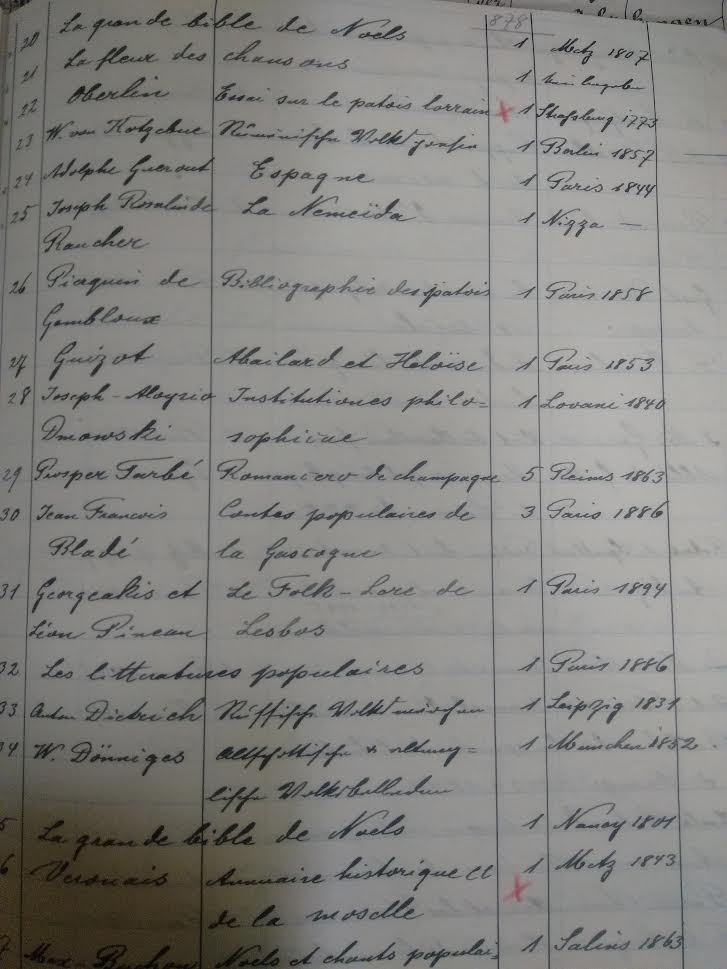 878
20 La grande bible de Noels 1 Metz 1807
21 La fleur des chansons 1
22 Oberlin Essai sur le patois lorrain x 1 Straßburg 1773
23 W. von Kotzebue Rumänische Volkspoesie 1 Berlin 1857
24 Adolphe Guerout Espagne 1 Paris 1844
25 Joseph Rosalinde La Nemeïda 1 Nizza —
Rancher
26 Pierquin de Bibliographie des patois 1 Paris 1858
Gembloux
27 Guizot Abailard et Heloïse 1 Paris 1853
28 Joseph-Aloysio Institutiones philo= 1 Lovani 1840
Dmowski sophicae
29 Prosper Tarbé Romancero de champagne 5 Reims 1863
30 Jean Francois Contes populaires de 3 Paris 1886
Bladé la Gascogne
31 Georgeakis et Le Folk-Lore de 1 Paris 1894
Léon Pineau Lesbos
32 Les litteratures populaires 1 Paris 1886
33 Anton Dietrich Russische Volksmärchen 1 Leipzig 1831
34 W. Dönniges Altschottische & alteng= 1 München 1852
lische Volksballaden
5 La grande bible de Noels 1 Nancy 1801
6 Veronais Annuaire historique et x 1 Metz 1843
de la moselle
7 Max-Buchon Noels et chants populai= 1 Salins 1863